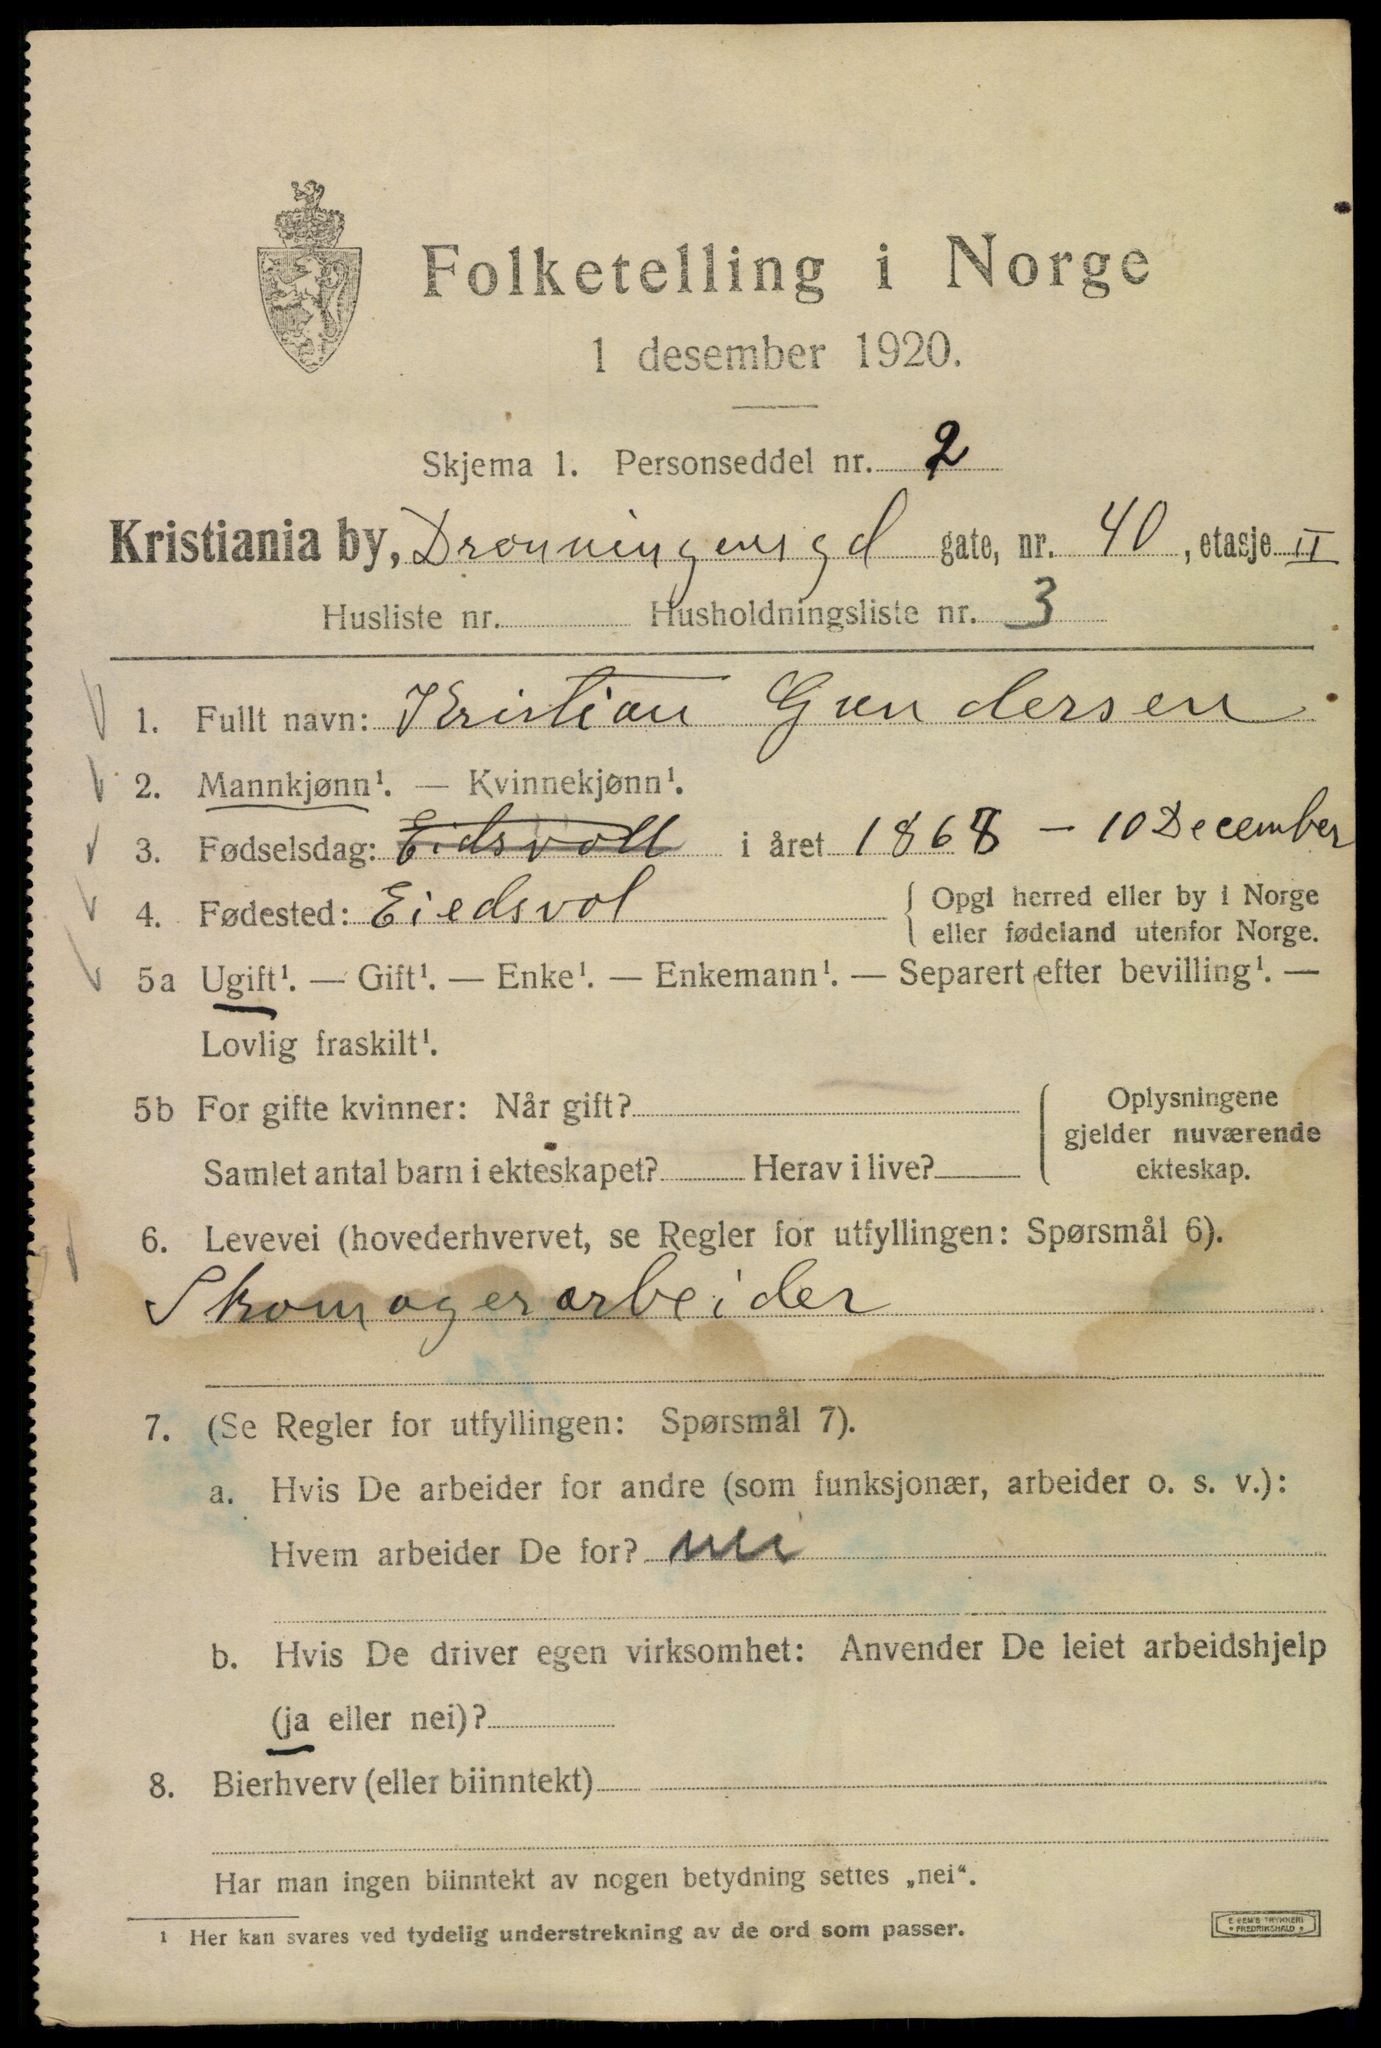 Folketelling i Norge
1 desember 1920.
Skjema 1. Personseddel nr. 2
Kristiania by, Dronningensgd gate, nr. 40, etasje II
Husliste nr. Husholdningsliste nr. 3
1. Fullt navn: Kristian Gundersen
2. Mannkjønn¹. — Kvinnekjønn¹.
3. Fødselsdag: Eidsvoll i året 1868 – 10 December
4. Fødested: Eiedsvol { Opgi herred eller by i Norge
eller fødeland utenfor Norge.
5a Ugift¹. — Gift¹. — Enke¹. — Enkemann¹. — Separert efter bevilling¹. —
Lovlig fraskilt¹.
5b For gifte kvinner: Når gift? { Oplysningene
gjelder nuværende
Samlet antal barn i ekteskapet? Herav i live? ekteskap.
6. Levevei (hovederhvervet, se Regler for utfyllingen: Spørsmål 6).
Skomagerarbeider
7. (Se Regler for utfyllingen: Spørsmål 7).
a. Hvis De arbeider for andre (som funksjonær, arbeider o. s. v.):
Hvem arbeider De for? nei
b. Hvis De driver egen virksomhet: Anvender De leiet arbeidshjelp
(ja eller nei)?
8. Bierhverv (eller biinntekt)
Har man ingen biinntekt av nogen betydning settes „nei“.
¹ Her kan svares ved tydelig understrekning av de ord som passer.
E. SEM'S TRYKKERI
• FREDRIKSHALD •